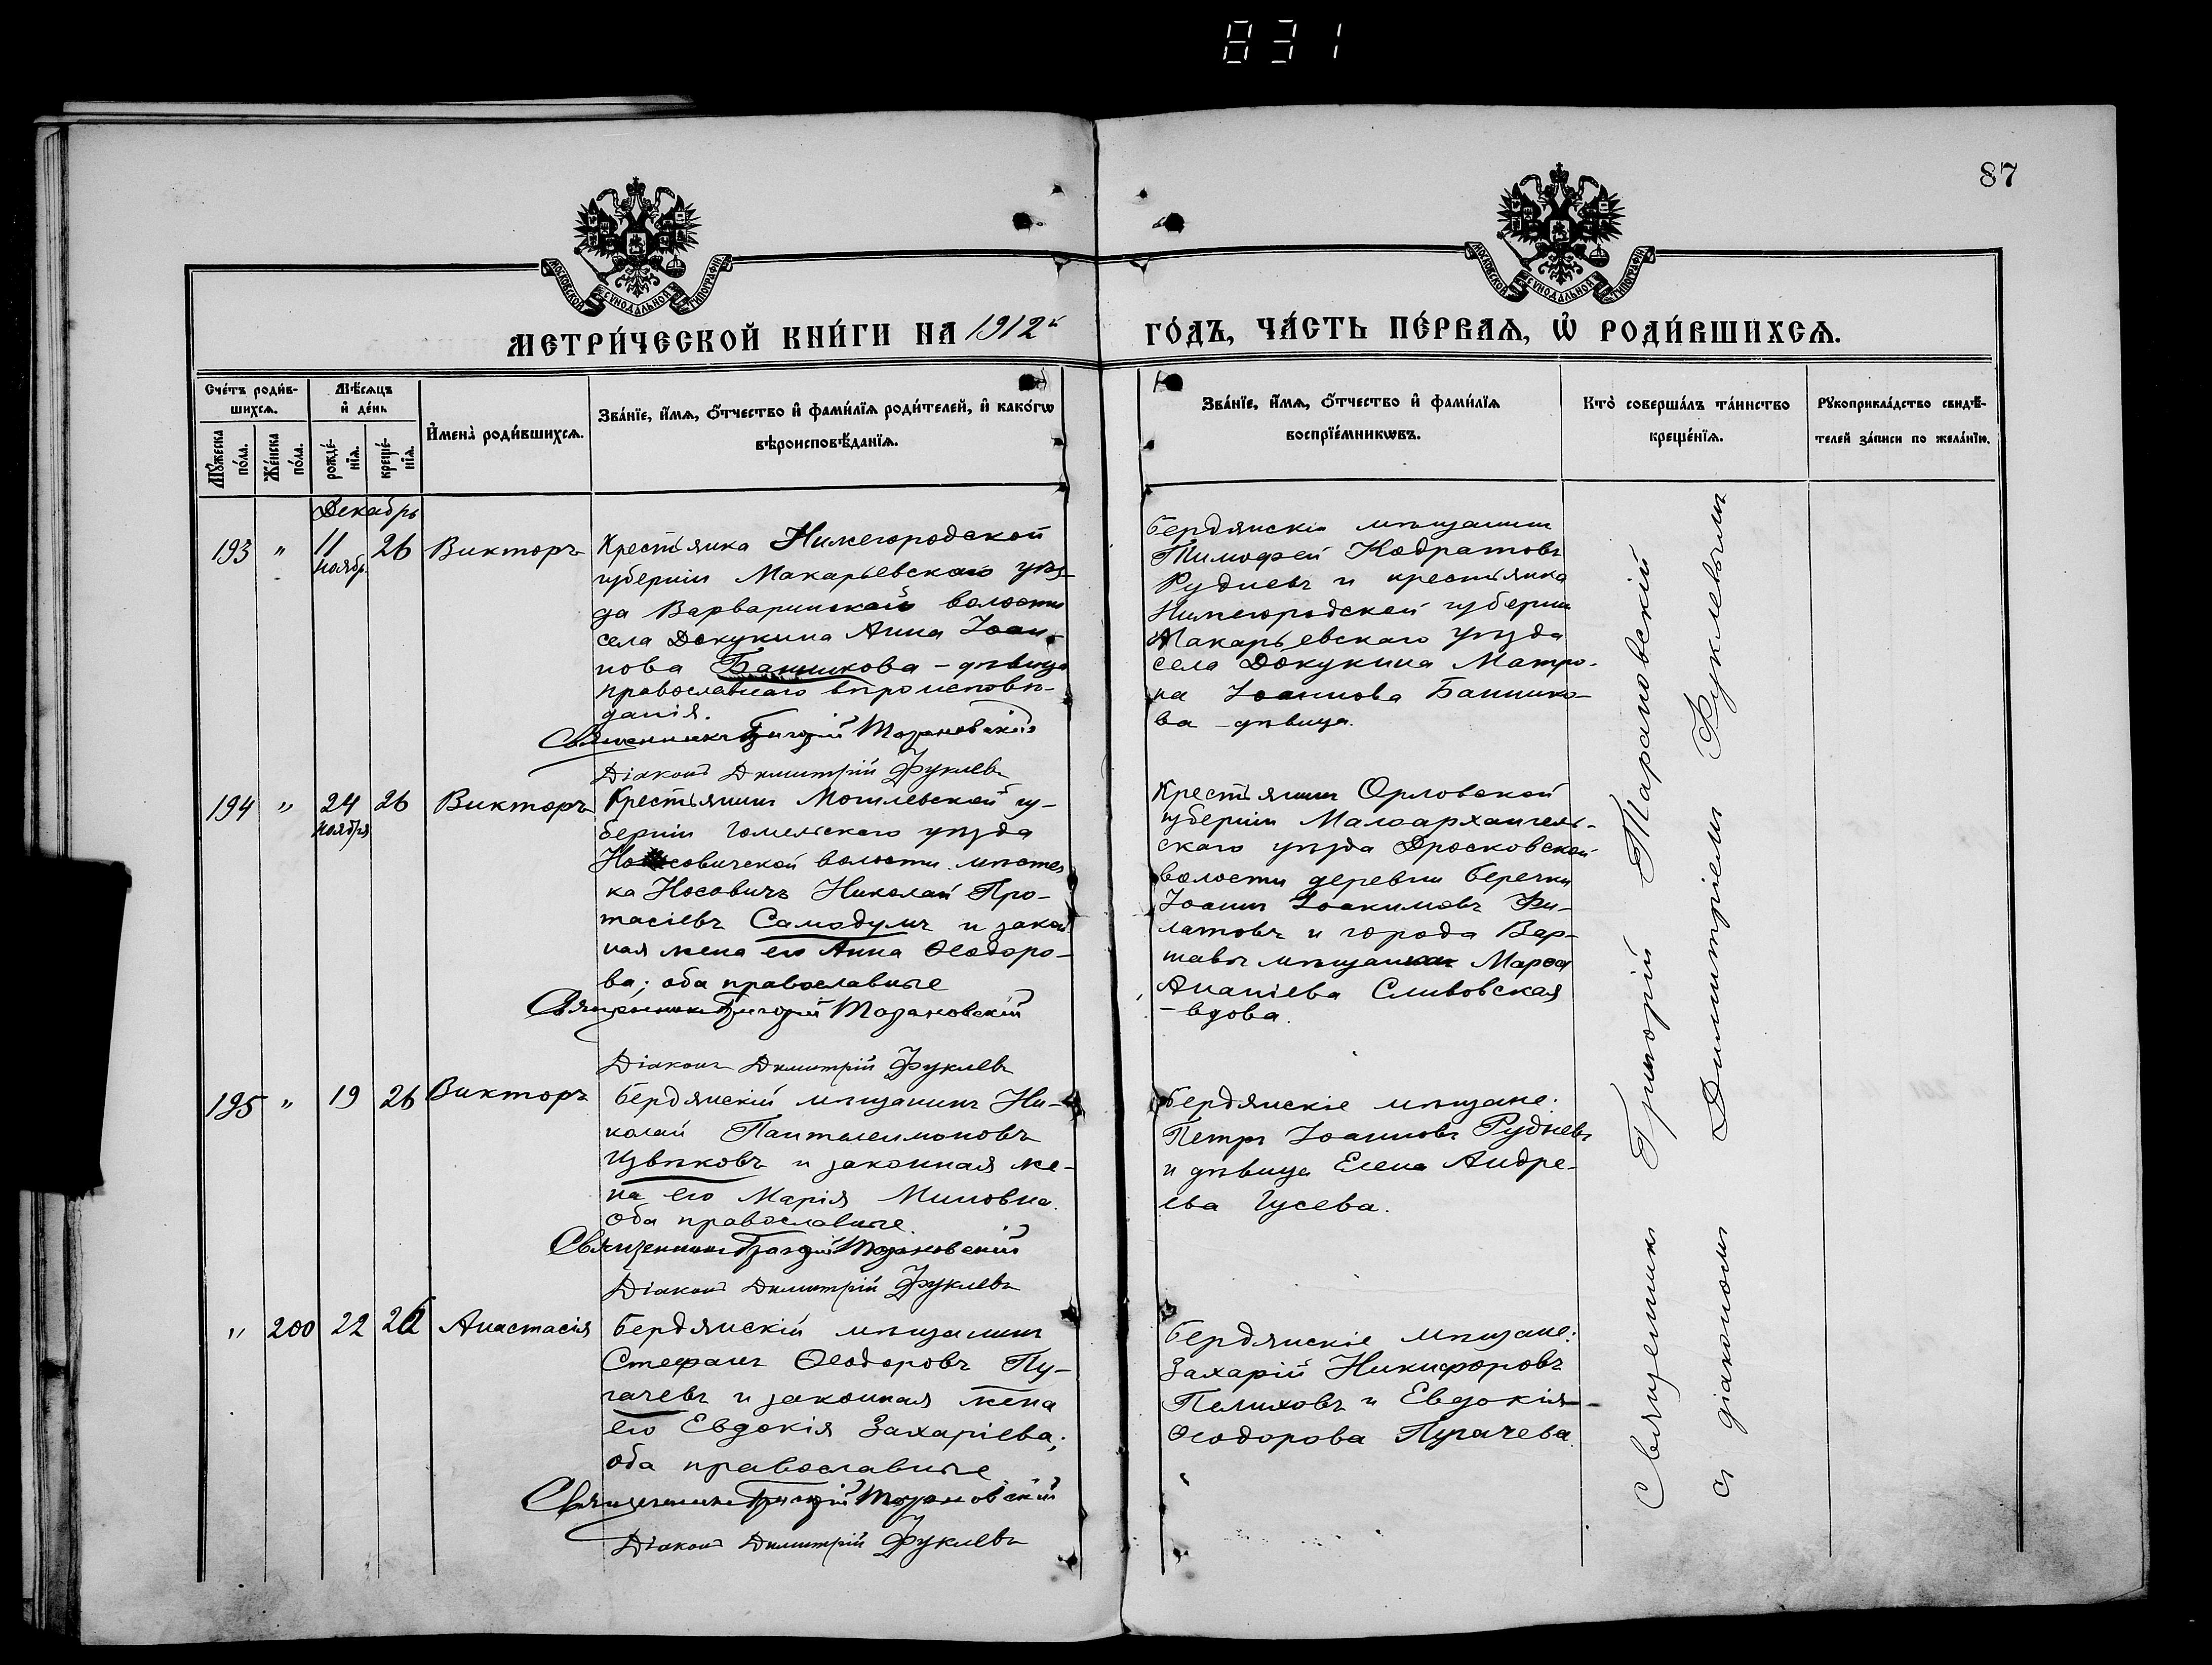 831
87
МОСКОВСКОЙ СѴНОДАЛЬНОЙ ТИПОГРАФІИ
МОСКОВСКОЙ СѴНОДАЛЬНОЙ ТИПОГРАФІИ
МЕТРИ́ЧЕСКОЙ КНИ́ГИ НА 1912й
ГО́ДЪ, ЧА́СТЬ ПЕ́РВАѦ, Ѡ҆ РОДИ́ВШИХСѦ.
Сче́тъ роди́в-
шихсѧ.
Мѣ́сѧцъ
и҆ де́нь
И҆мена̀ роди́вшихсѧ.
Зва́нїе, и҆́мѧ, ѻ҆́тчество и҆ фами́лїѧ роди́телей, и҆ како́гѡ
вѣроисповѣ́данїѧ.
Мꙋ́жеска
по́ла.
Же́нска
по́ла.
рожде́-
нїѧ.
креще́-
нїѧ.
Зва́нїе, и҆́мѧ, ѻ҆́тчество и҆ фами́лїѧ
воспрїе́мникѡвъ.
Кто̀ соверша́лъ та́инство
креще́нїѧ.
Рꙋкоприкла́дство свидѣ́-
телей за́писи по жела́нїю.
Декабрь
193 " 11 26 Викторъ
ноябр.
Крестьянка Нижегородской
губерніи Макарьевскаго уѣз-
да Варваринской волости
села Докукина Анна Іоан-
нова Банникова - дѣвица
православнаго вѣроисповѣ-
данія.
Священникъ Григорій Тарановскій
Діаконъ Димитрій Фуклевъ
Бердянскій мѣщанинъ
Тимофей Кодратовъ
Рудневъ и крестьянка
Нижегородской губерніи
Макарьевскаго уѣзда
села Докукина Матро-
на Іоаннова Баннико-
ва - дѣвица.
194 " 24 26 Викторъ
ноября
Крестьянинъ Могилевской гу-
берніи Гомельскаго уѣзда
Носовичской волости мѣстеч
ка Носовичъ Николай Про-
тасіевъ Самодумъ и закон
ная жена его Анна Ѳеодоро-
ва; оба православные
Священникъ Григорій Тарановскій
Діаконъ Димитрій Фуклевъ
Крестьянинъ Орловской
губерніи Малоархангель-
скаго уѣзда Дросковской
волости деревни Беречки
Іоаннъ Іоакимовъ Фи-
латовъ и города Вар-
шавы мѣщанка Марѳа
Ананіева Сливовская
- вдова.
195 " 19 26 Викторъ
Бердянскій мѣщанинъ Ни-
колай Пантелеимоновъ
Цвѣковъ и законная же-
на его Марія Миновна.
оба православные.
Священникъ Григорій Тарановскій
Діаконъ Димитрій Фуклевъ
Бердянскіе мѣщане:
Петръ Іоанновъ Рудневъ
и дѣвица Елена Андре-
ева Гусева.
" 200 22 26 Анастасія
Бердянскій мѣщанинъ
Стефанъ Ѳеодоровъ Пу-
гачевъ и законная жена
его Евдокія Захаріева;
оба православные
Священникъ Григорій Тарановскій
Діаконъ Димитрій Фуклевъ
Бердянскіе мѣщане:
Захарій Никифоровъ
Пелиховъ и Евдокія
Ѳеодорова Пугачева.
Священникъ Григорій Тарановскій
съ діакономъ Димитріемъ Фуклевымъ